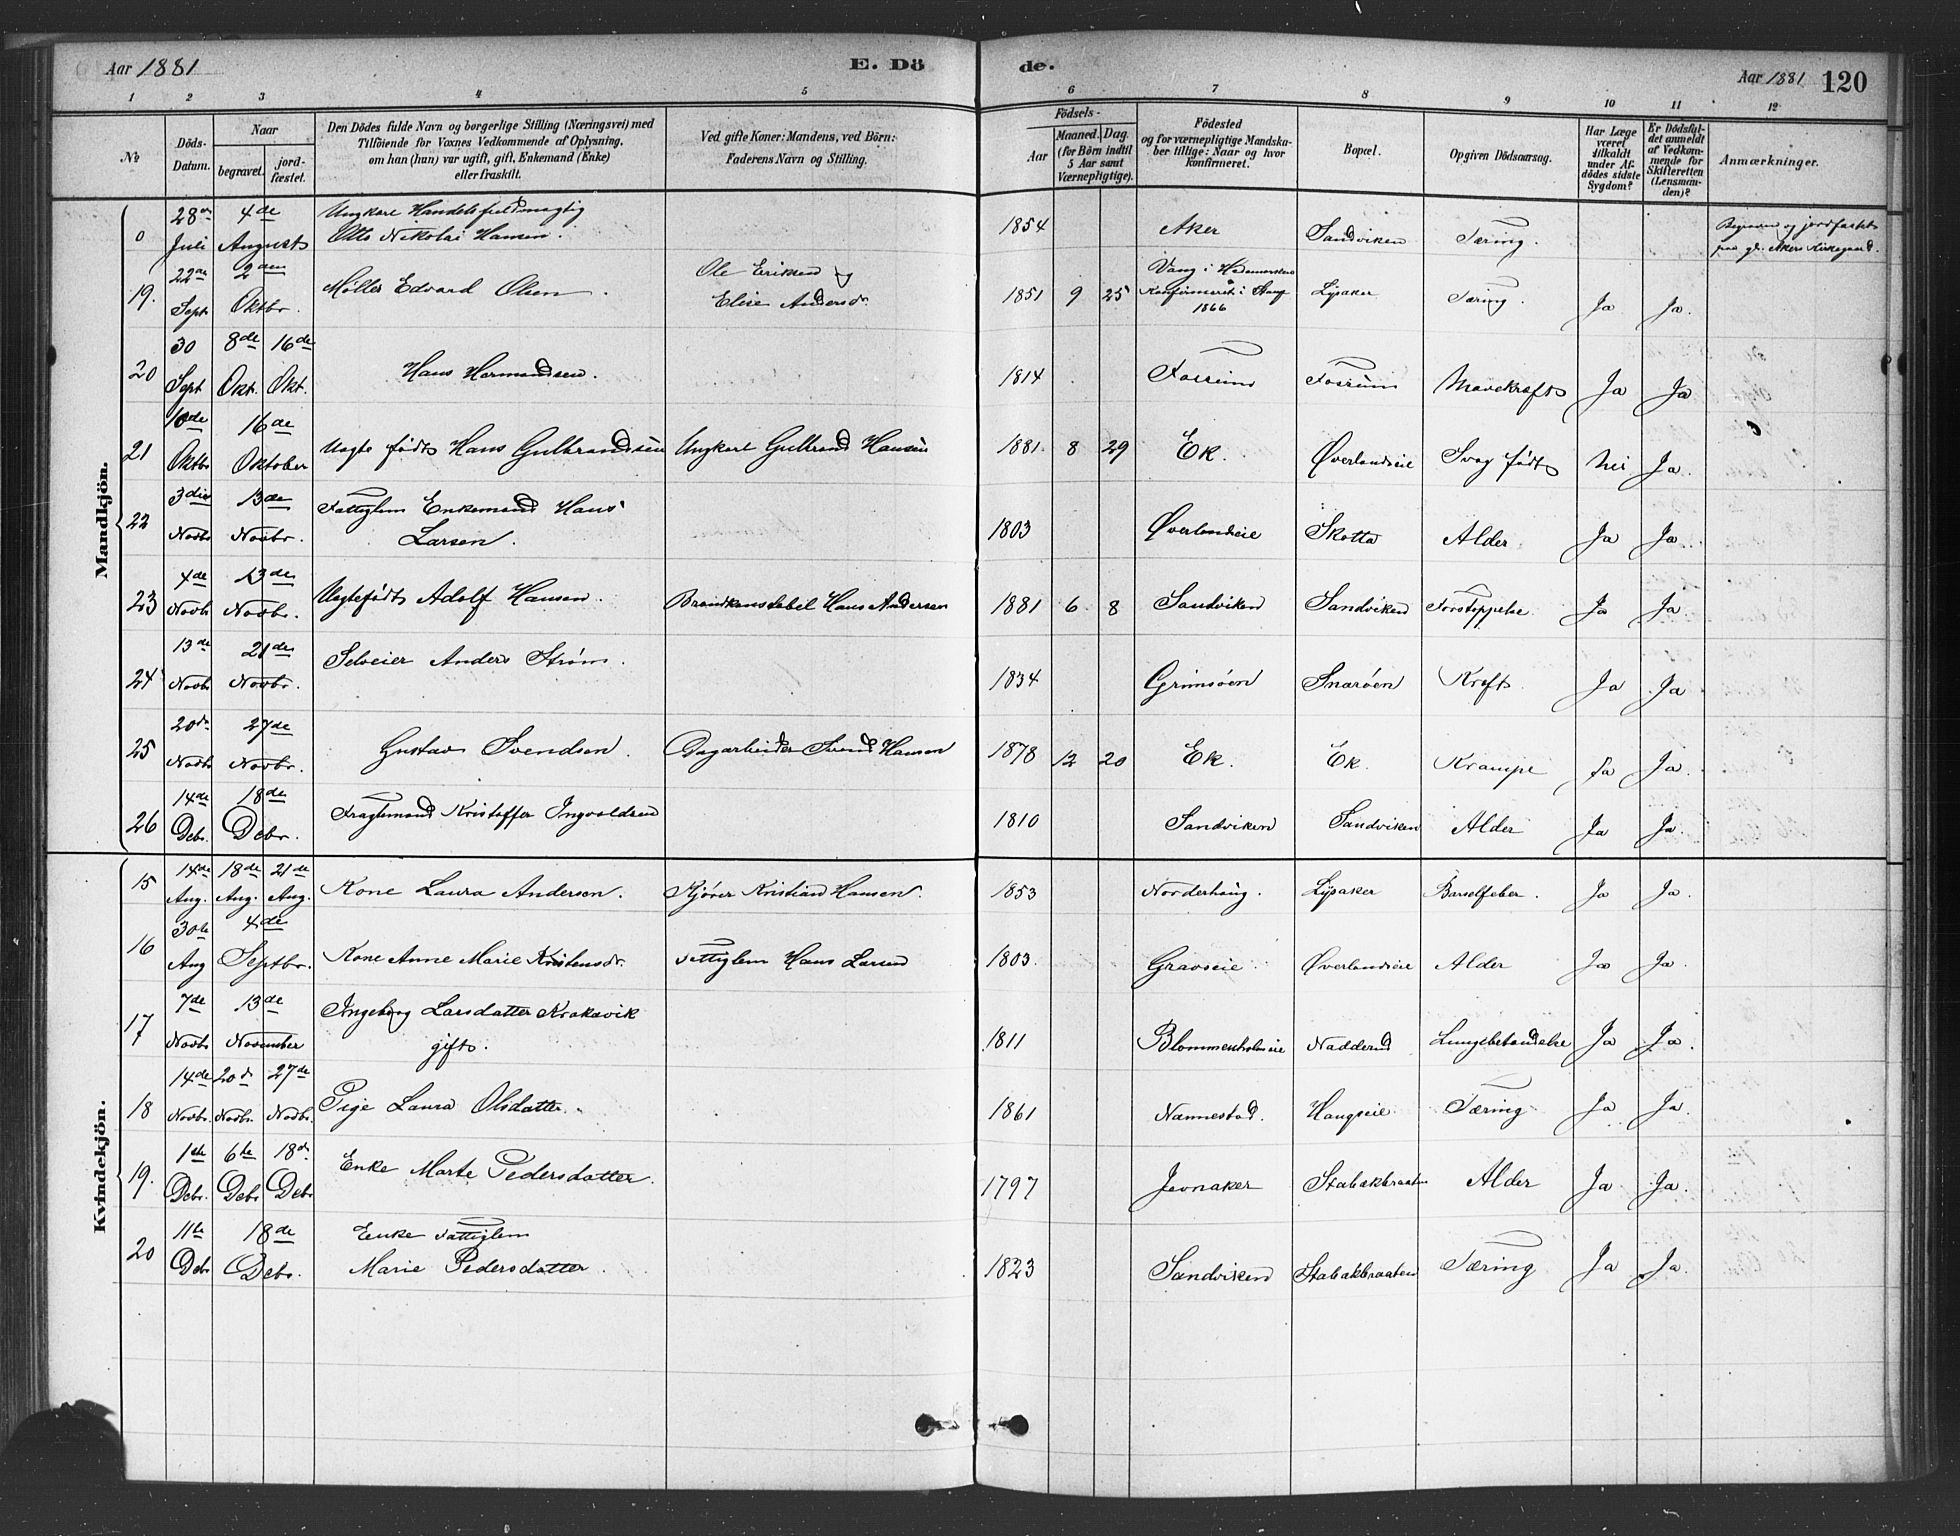 Aar 1881
E. Dö
de.
Aar 1881 120
1 2 3 4 5 6 7 8 9 10 11 12
№
Döds-Datum.
Naar
begravet.
jord-fæstet.
Den Dödes fulde Navn og borgerlige Stilling (Næringsvei) med
Tilföiende for Voxnes Vedkommende af Oplysning,
om han (hun) var ugift, gift, Enkemand (Enke)
eller fraskilt.
Ved gifte Koner: Mandens, ved Börn:
Faderens Navn og Stilling.
Födsels-
Aar
Maaned. Dag.
(for Börn indtil
5 Aar samt
Værnepligtige).
Födested
og for værnepligtige Mandska-
ber tillige: Naar og hvor
konfirmeret.
Bopæl.
Opgiven Dödsaarsag.
Har Læge
været
tilkaldt
under Af-
dödes sidste
Sygdom?
Er Dödsfal-
det anmeldt
af Vedkom-
mende for
Skifteretten
(Lensman-
den)?
Anmærkninger.
Mandkjön.
0 28de Juli 4de August Ungkarl Handelsfuldmægtig
Otto Nikolai Hansen. 1854 Aker Sandviken Tæring. Begraven og jordfæstet
paa gl. Akers Kirkegaard.
19. 22de Sept 2den Oktbr. Møller Edvard Olsen. Ole Eriksen og
Elise Andersdr. 1851 9 25 Vang i Hedemarken
Konfirmeret i Stange
1866 Lysaker Tæring. Ja Ja.
20 30 Sept 8de Okt. 16de Okt. Hans Hermandsen. 1814 Fossum Fossum Mavekræft Ja Ja
21 10de Oktbr 16de Oktober Uægte født Hans Gulbrandsen Ungkarl Gulbrand Hansen 1881 8 29 Ek. Øverlandseie Svag født Nei Ja.
22 3die Novbr 13de Novbr. Fattiglem Enkemand Hans
Larsen. 1803 Øverlandseie Skotta Alder Ja Ja
23 4de Novbr 13de Novbr. Uægtefødt Adolf Hansen. Brandkonstabel Hans Andersen 1881 6 8 Sandviken Sandviken Forstoppelse. Ja Ja.
24 13de Novbr 21de Novbr. Selveier Anders Strøm. 1834 Grimsøen Snarøen Kræft. Ja Ja
25 20de Novbr 27de Novbr. Gustav Svendsen. Dagarbeider Svend Hansen 1878 12 20 Ek. Ek. Krampe Ja Ja.
26 14de Debr. 18de Debr. Fragtemand Kristoffer Ingvoldsen 1810 Sandviken Sandviken Alder Ja Ja.
Kvindekjön.
15 14de Aug. 18de Aug. 21de Aug. Kone Laura Andersen. Kjører Kristian Hansen. 1853 Norderhoug. Lysaker Barselfeber. Ja Ja.
16 30te Aug 4de Septbr. Kone Anne Marie Kristensdr. Fattiglem Hans Larsen 1803 Gravseie. Øverlandseie Alder Ja Ja.
17 7de Novbr 13de November Ingeborg Larsdatter Krokavik
gift. 1811 Blommenholmeie Nadderud Lungebetændelse Ja Ja.
18 14de Novbr. 20de Novbr. 27de Novbr. Pige Laura Olsdatter. 1861 Nannestad. Haugseie Tæring Ja Ja.
19. 1ste Debr. 6te Debr 18de Debr Enke Marte Pedersdatter. 1797 Jevnaker Stabækbraaten Alder Ja Ja.
20 11te Debr 18de Debr. Enke Fattiglem
Marie Pedersdatter. 1823 Sandviken Stabækbraaten Tæring Ja Ja.